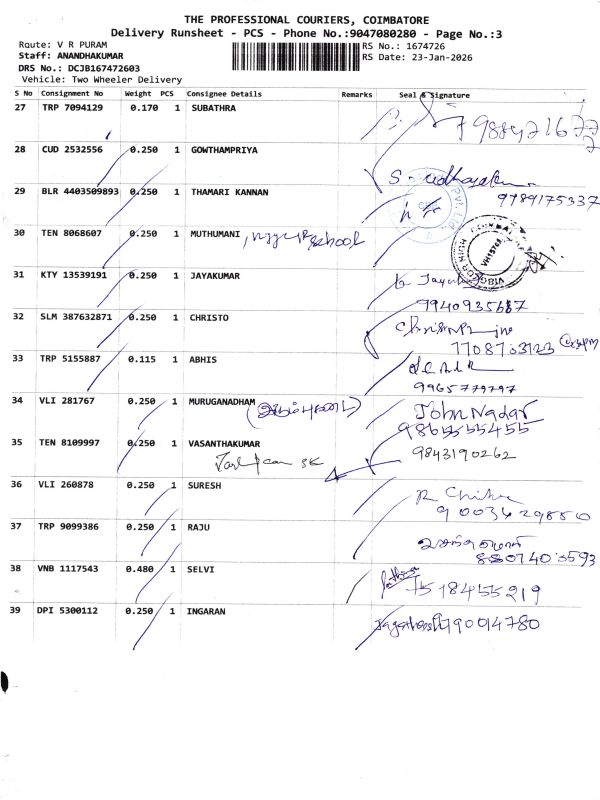 THE PROFESSIONAL COURIERS, COIMBATORE
Delivery Runsheet - PCS - Phone No.:9047080280 - Page No.:3
Route: V R PURAM
RS No.: 1674726
Staff: ANANDHAKUMAR
RS Date: 23-Jan-2026
DRS No.: DCJB167472603
Vehicle: Two Wheeler Delivery
S No Consignment No Weight PCS Consignee Details Remarks Seal & Signature
27 TRP 7094129 0.170 1 SUBATHRA
28 CUD 2532556 0.250 1 GOWTHAMPRIYA
29 BLR 4403509893 0.250 1 THAMARI KANNAN
9789175337
30 TEN 8068607 0.250 1 MUTHUMANI, school
31 KTY 13539191 0.250 1 JAYAKUMAR
32 SLM 387632871 0.250 1 CHRISTO
33 TRP 5155887 0.115 1 ABHIS
9965779797
34 VLI 281767 0.250 1 MURUGANADHAM John Nadar
9865555455
35 TEN 8109997 0.250 1 VASANTHAKUMAR 9843190262
36 VLI 260878 0.250 1 SURESH R Chitra
9003629850
37 TRP 9099386 0.250 1 RAJU
38 VNB 1117543 0.480 1 SELVI
7518455219
39 DPI 5300112 0.250 1 INGARAN